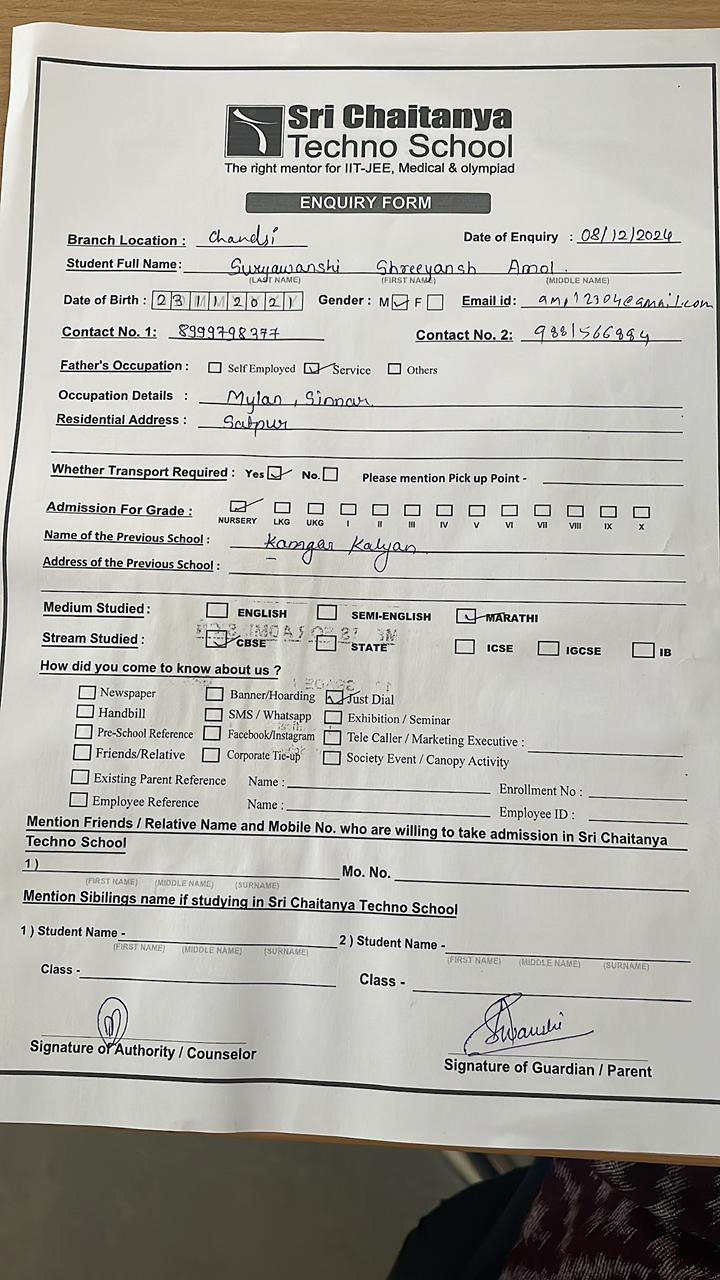 Sri Chaitanya
Techno School
The right mentor for IIT-JEE, Medical & olympiad
ENQUIRY FORM
Branch Location : Chandsi Date of Enquiry : 08/12/2024
Student Full Name: Suryawanshi Shreeyansh Amol.
(LAST NAME) (FIRST NAME) (MIDDLE NAME)
Date of Birth : 23112021 Gender : M F Email id:
Contact No. 1: 8999798377 Contact No. 2:
Father's Occupation : Self Employed Service Others
Occupation Details : Mylan, Sinnar.
Residential Address : Satpur
Whether Transport Required : Yes No. Please mention Pick up Point -
Admission For Grade :
NURSERY LKG UKG I II III IV V VI VII VIII IX X
Name of the Previous School : Kamgar Kalyan.
Address of the Previous School :
Medium Studied : ENGLISH SEMI-ENGLISH MARATHI
Stream Studied : CBSE STATE ICSE IGCSE IB
How did you come to know about us ?
Newspaper Banner/Hoarding Just Dial
Handbill SMS / Whatsapp Exhibition / Seminar
Pre-School Reference Facebook/Instagram Tele Caller / Marketing Executive :
Friends/Relative Corporate Tie-up Society Event / Canopy Activity
Existing Parent Reference Name : Enrollment No :
Employee Reference Name : Employee ID :
Mention Friends / Relative Name and Mobile No. who are willing to take admission in Sri Chaitanya
Techno School
1) Mo. No.
(FIRST NAME) (MIDDLE NAME) (SURNAME)
Mention Sibilings name if studying in Sri Chaitanya Techno School
1 ) Student Name - 2 ) Student Name -
(FIRST NAME) (MIDDLE NAME) (SURNAME) (FIRST NAME) (MIDDLE NAME) (SURNAME)
Class - Class -
Signature of Authority / Counselor Signature of Guardian / Parent